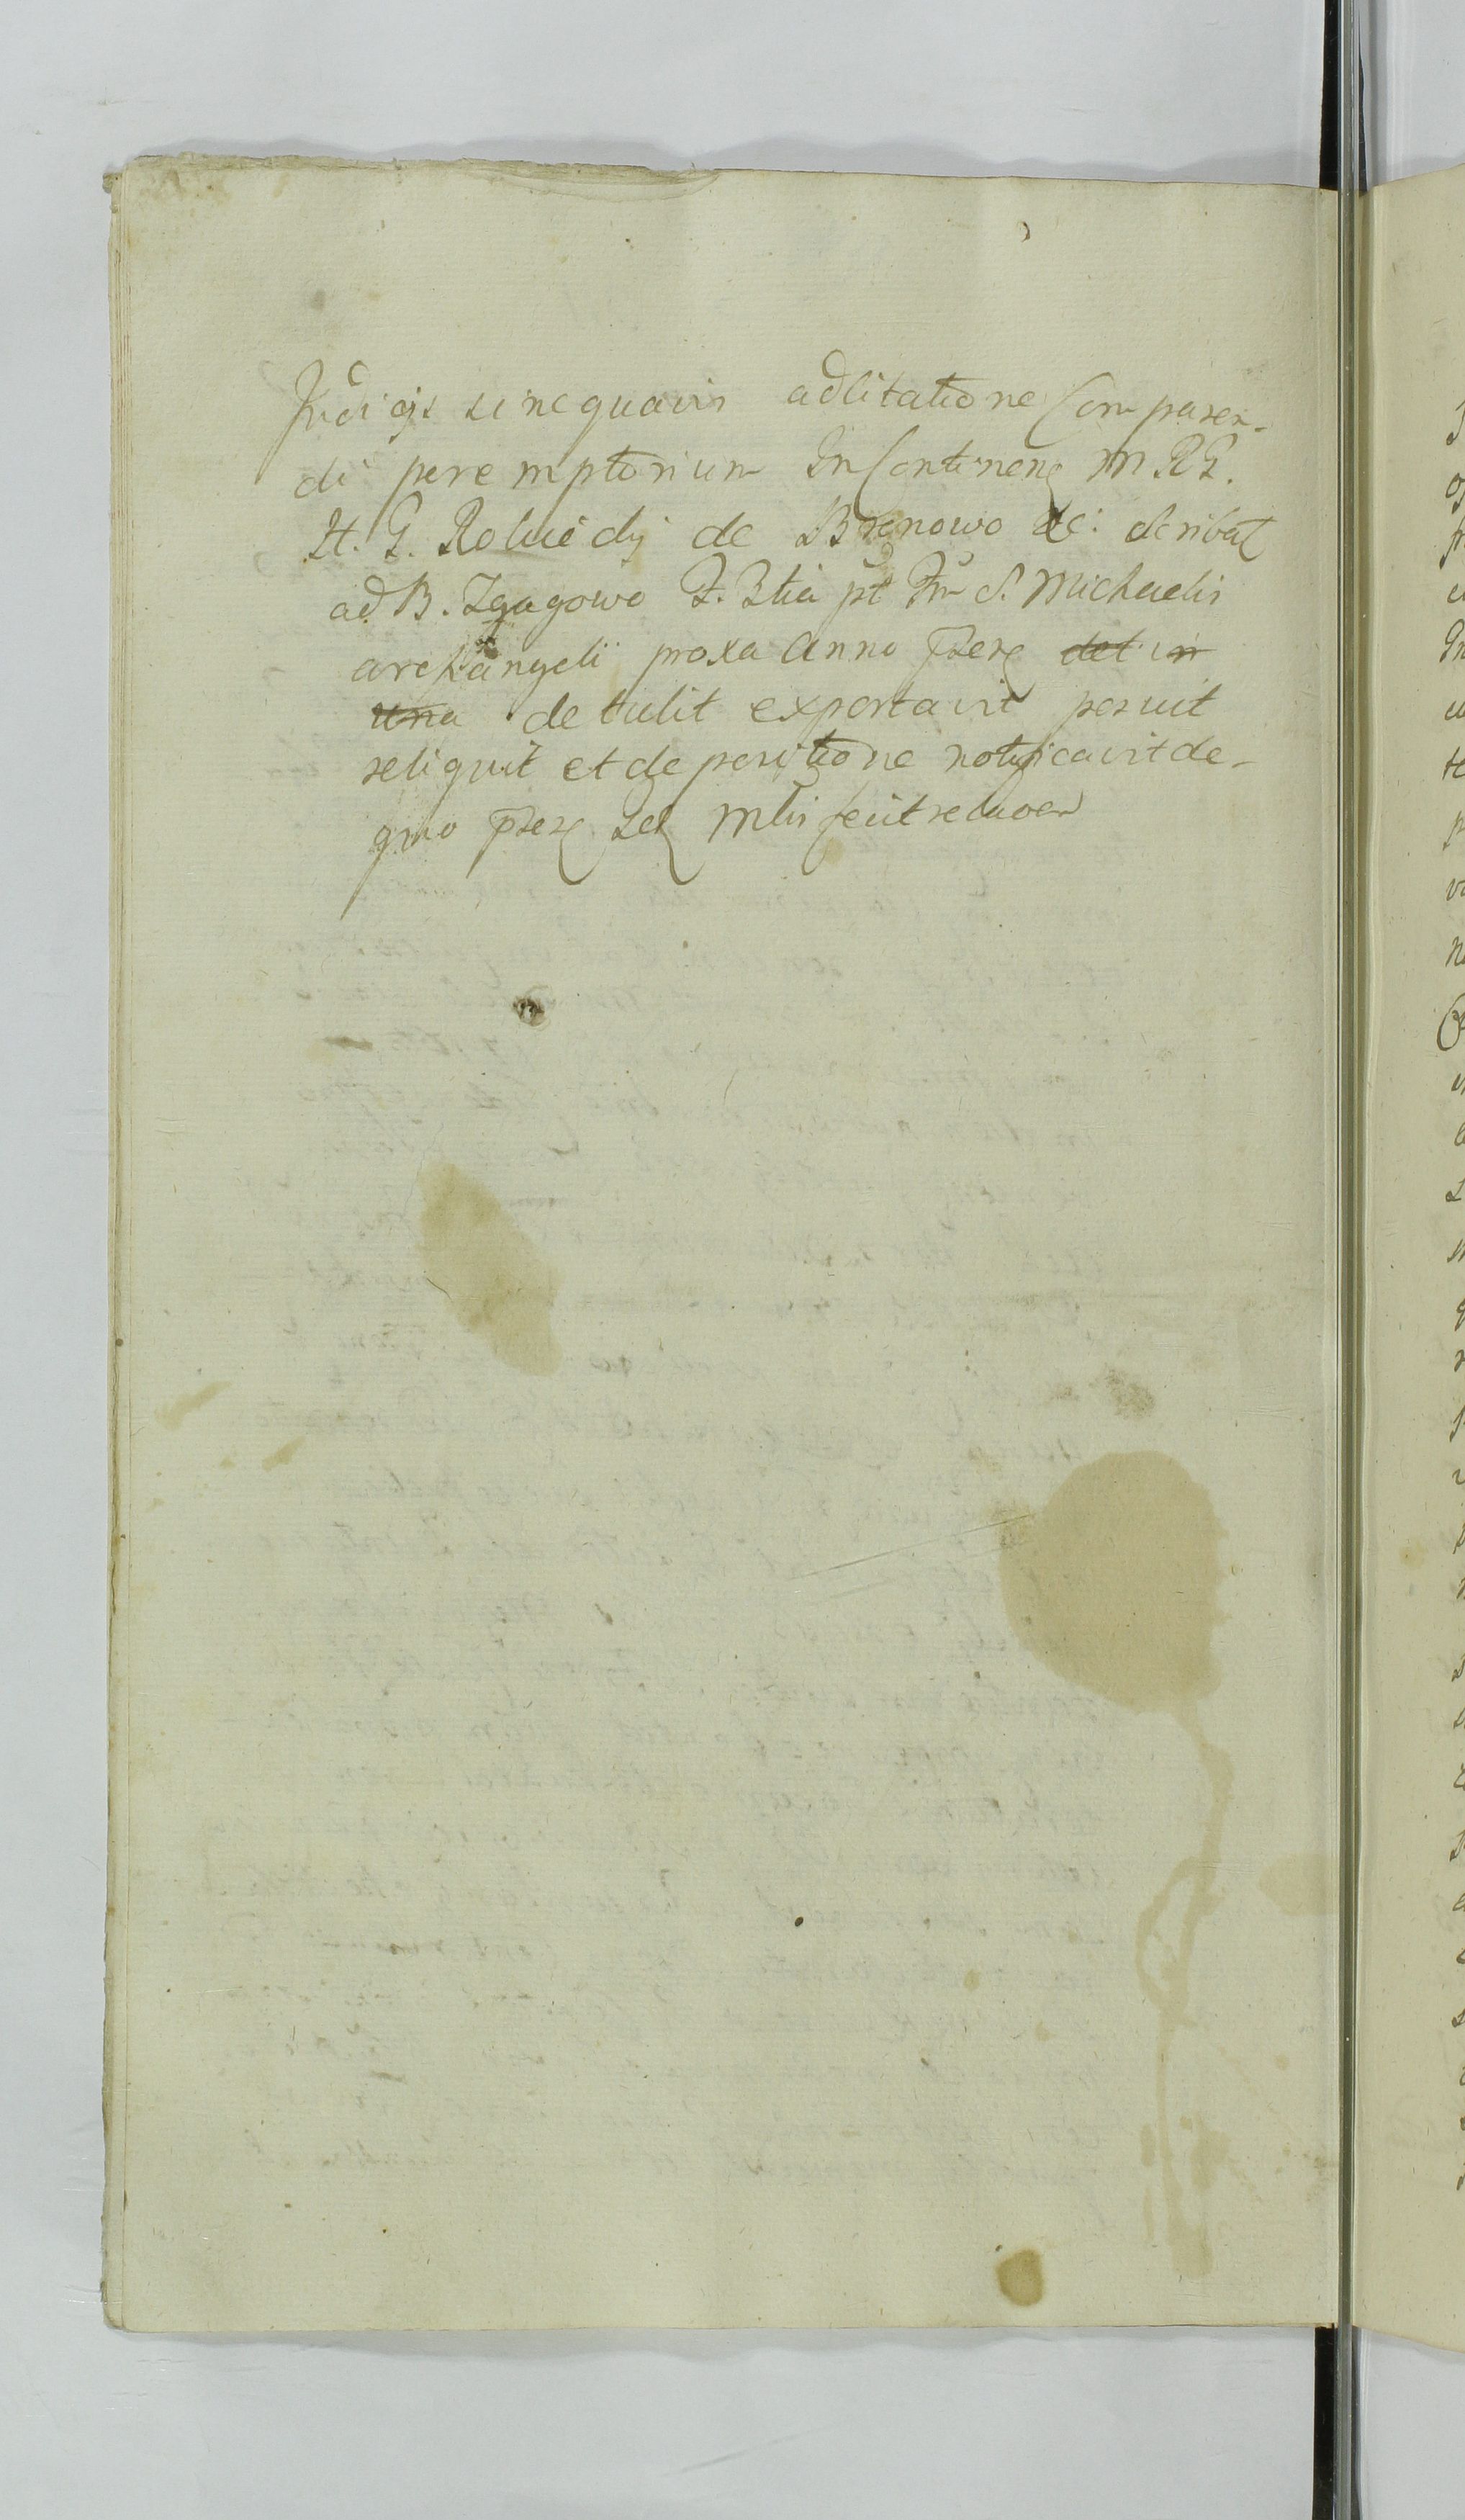 Judicys sinequavis adcitatione Comparen-
di peremptorium In Continen M. R G.
It. G. de Brenowo de: scribat
ad B. Zgagowo F. 2tia pt Fm S. Michaelis
archangeli proxa Anno Prese det in
una detulit exportavit posuit
reliquit et de positione notificavit de-
quo prese Rel